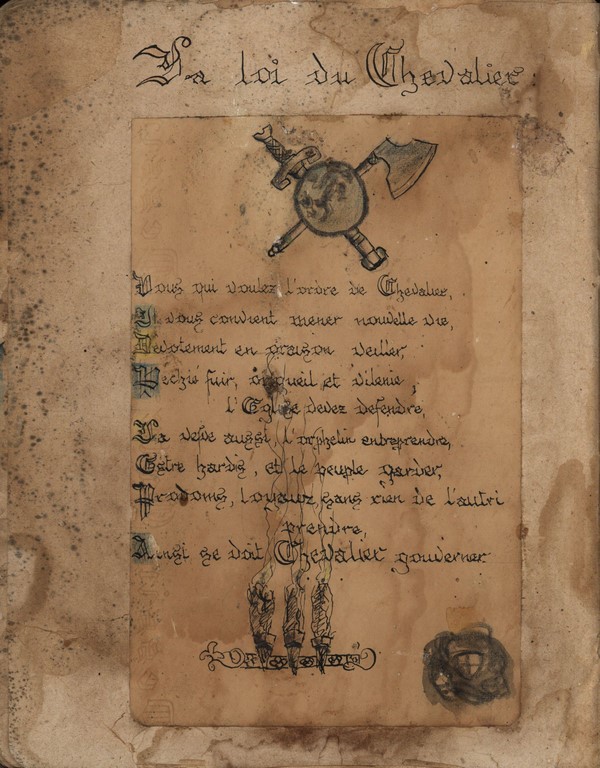 La loi du Chevalier
Vous qui voulez l'ordre de Chevalier,
Il vous convient mener nouvelle vie,
Devotement en oraison veiller,
Pechié fuir, orgueil et vilenie ;
l'Eglise devez defendre,
La vefve aussi, l'orphelin entreprendre,
Estre hardis, et le peuple garder,
Prodoms, loyaux sans rien de l'autri
prendre,
Ainsi se doit Chevalier gouverner